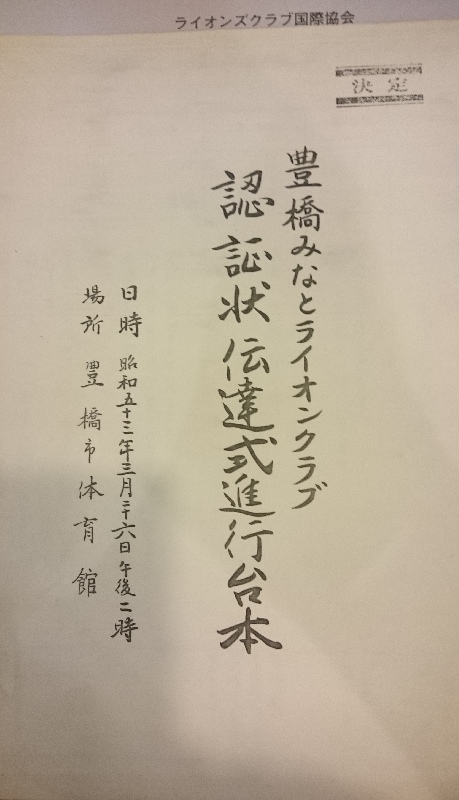 ライオンズクラブ国際協会
決定
豊橋みなとライオンクラブ
認証状伝達式進行台本
日時 昭和五十三年三月二十六日午後二時
場所 豊橋市体育館